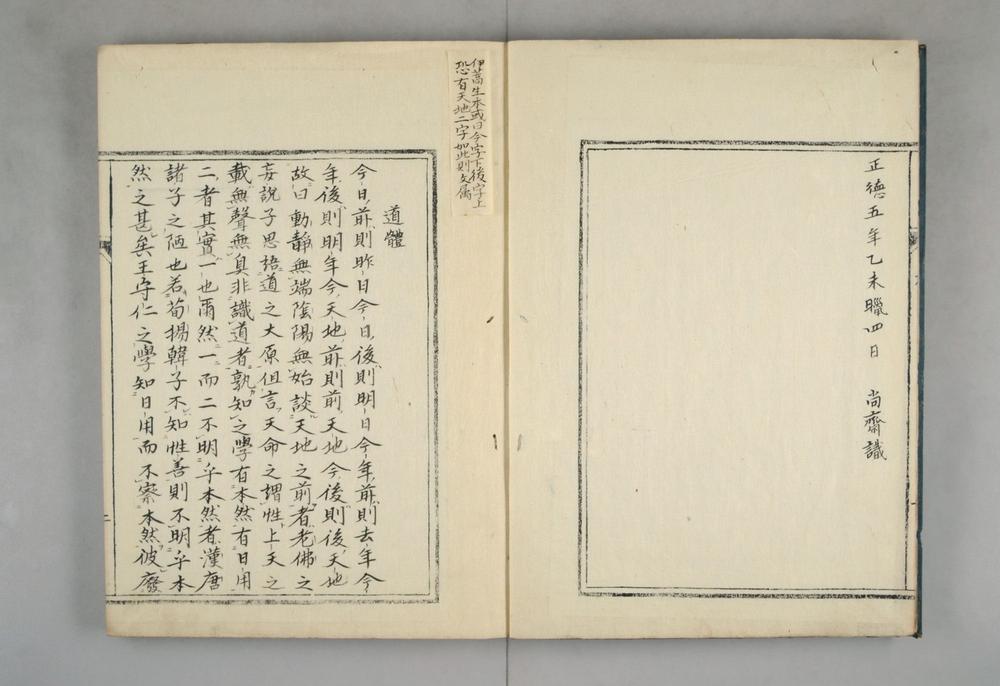 正德五年乙未臘四日　尚齋識
伊蒿生本或曰今字下後字上
恐有天地二字如此則文属
道體
今日前則昨日今日後則明日今年前則去年今
年後則明年今天地前則前天地今後則後天地
故曰動靜無端陰陽無始談天地之前者老佛之
妄說子思語道之大原但言天命之謂性上天之
載無聲無臭非識道者孰知之學有本然有日用
二者其實一也爾然一而二不明乎本然者漢唐
諸子之陋也若荀揚韓子不知性善則不明乎本
然之甚矣王守仁之學知日用而不察本然彼廢